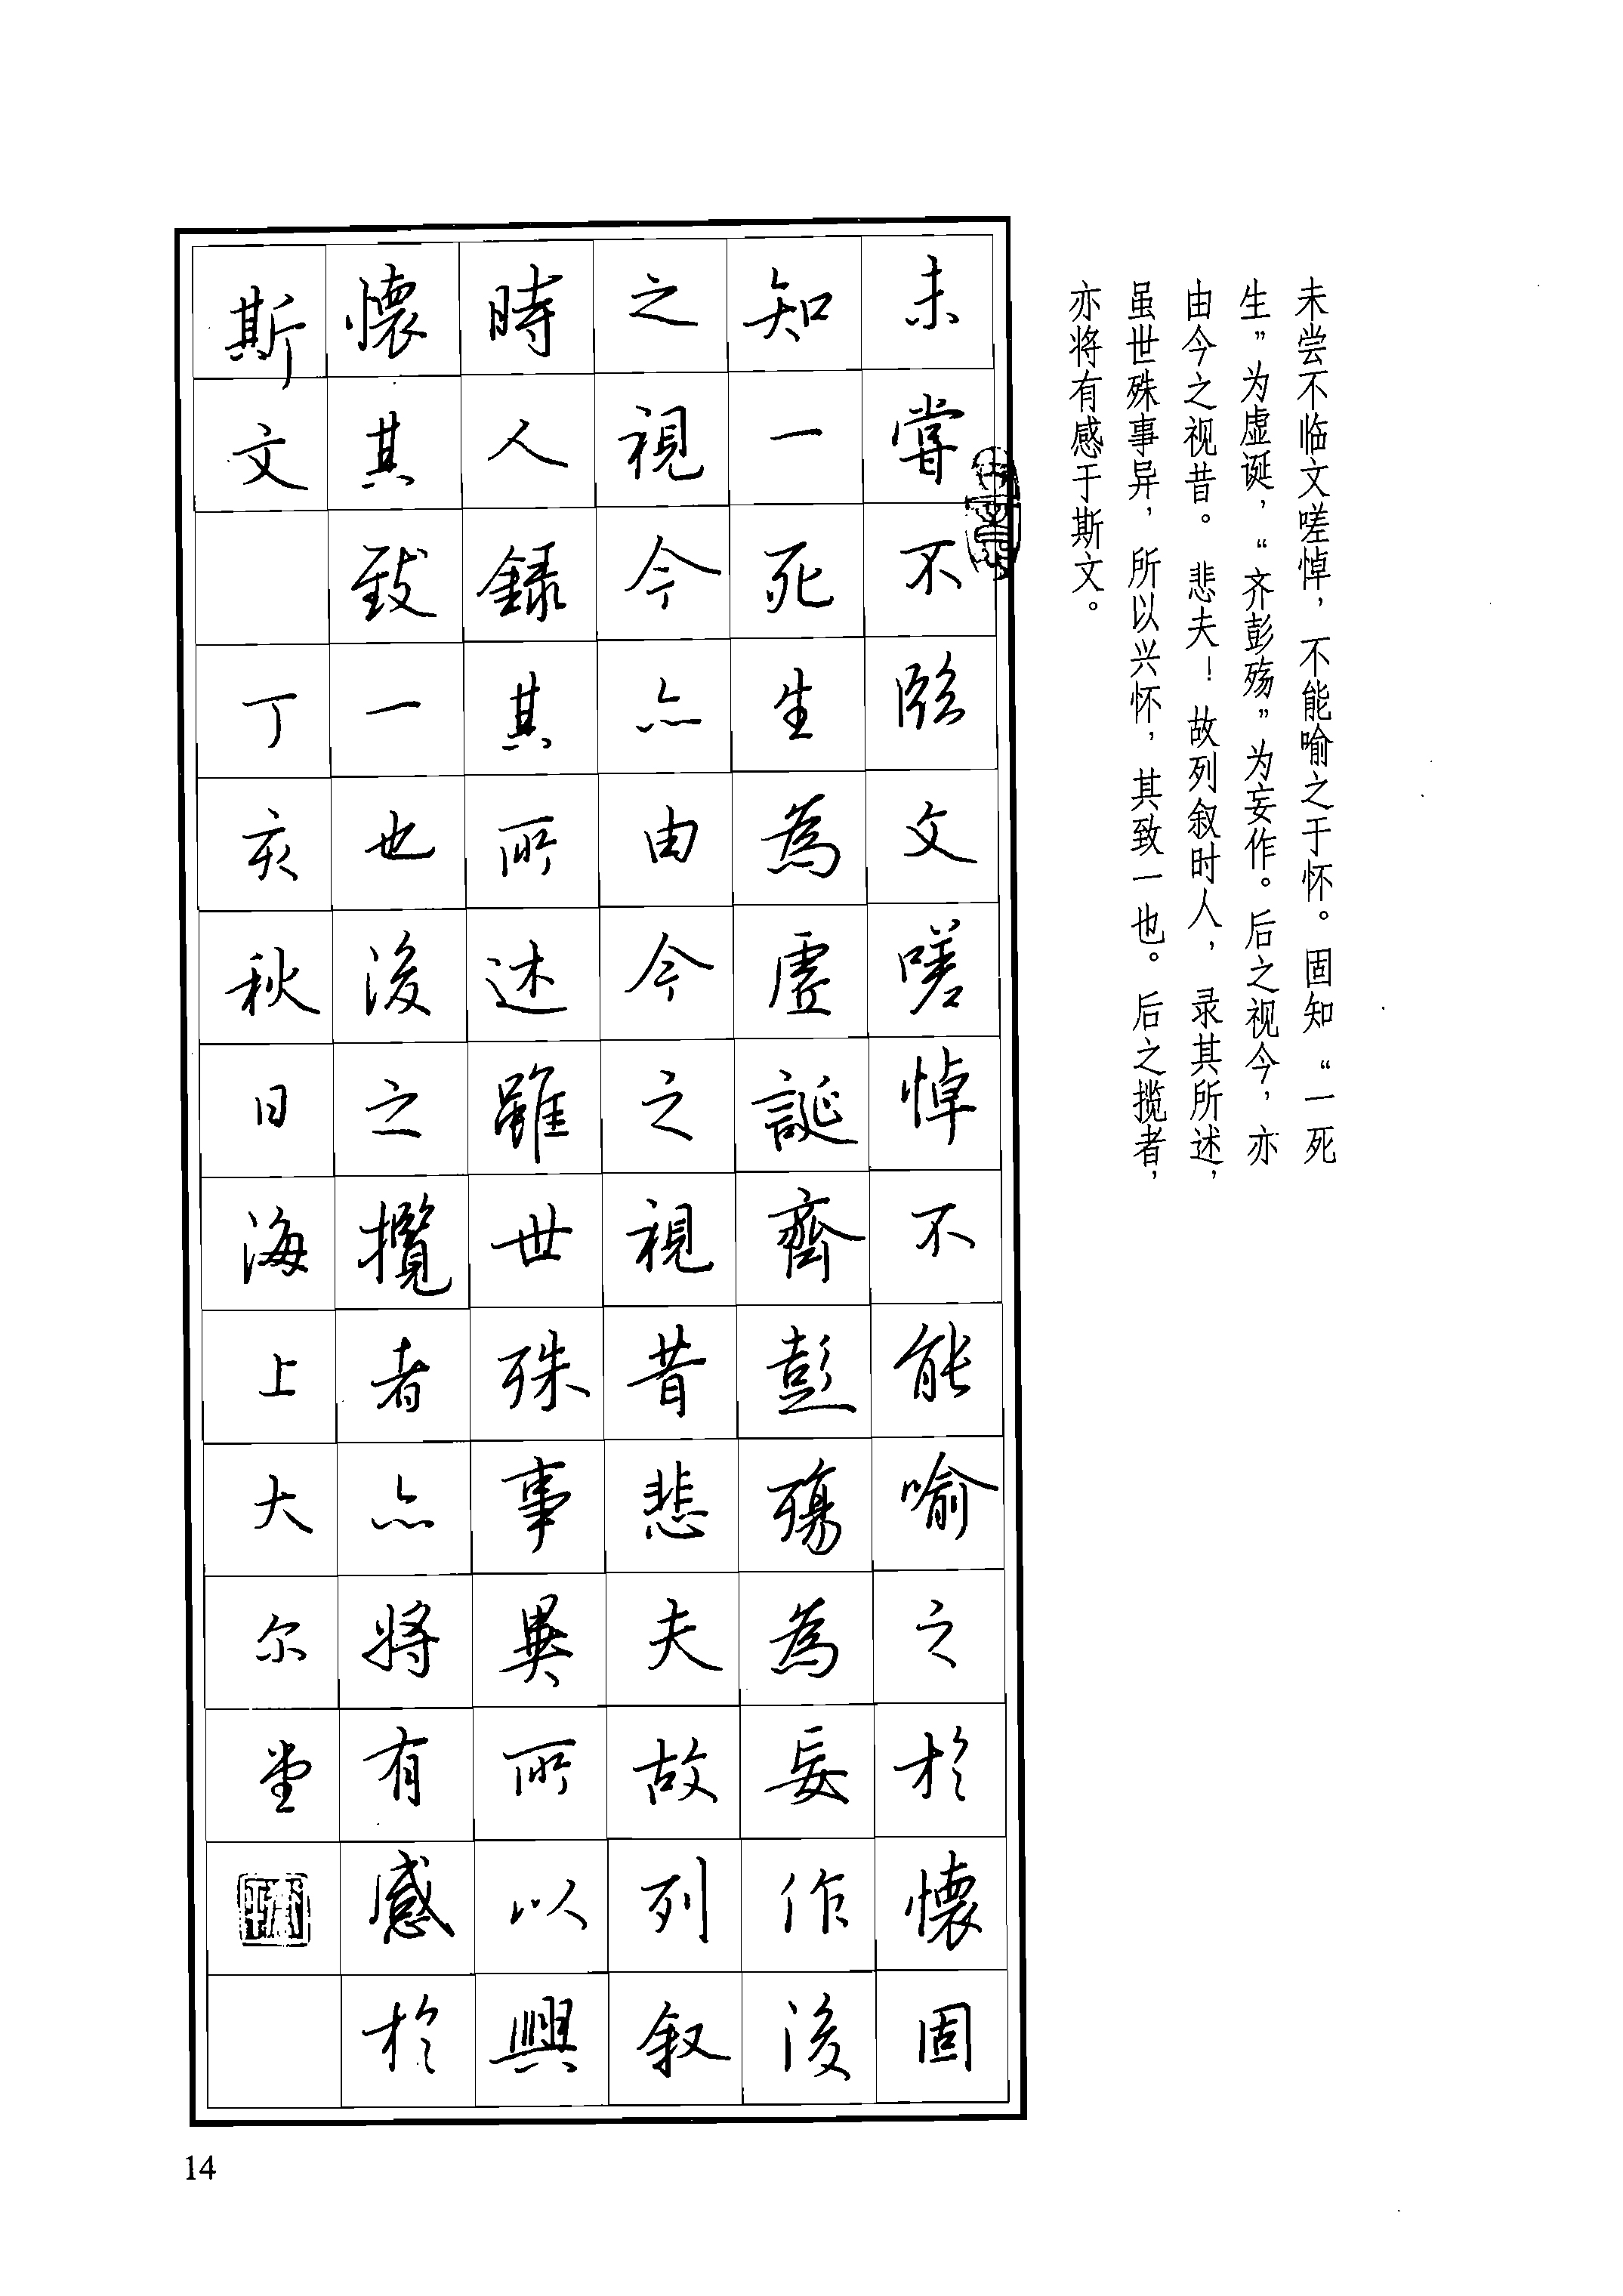 未尝不临文嗟悼，不能喻之于怀。固知“一死
生”为虚诞，“齐彭殇”为妄作。后之视今，亦
由今之视昔。悲夫！故列叙时人，录其所述，
虽世殊事异，所以兴怀，其致一也。后之揽者，
亦将有感于斯文。
未嘗不臨文嗟悼不能喻之於懷固
知一死生為虛誕齊彭殤為妄作後
之視今亦由今之視昔悲夫故列叙
時人錄其所述雖世殊事異所以興
懷其致一也後之攬者亦將有感於
斯文 丁亥秋日海上大尔堂
14